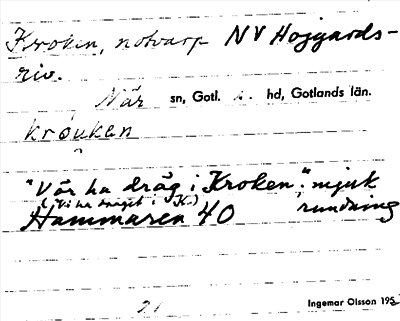 Kroken, notvarp NV Hoggards-
riv.
När sn, Gotl. s. hd, Gotlands län.
krōuken
"Vör ha dräg i Kroken"; mjuk
("Vi ha draget i K.") rundning
Hammaren 40
21
Ingemar Olsson 195